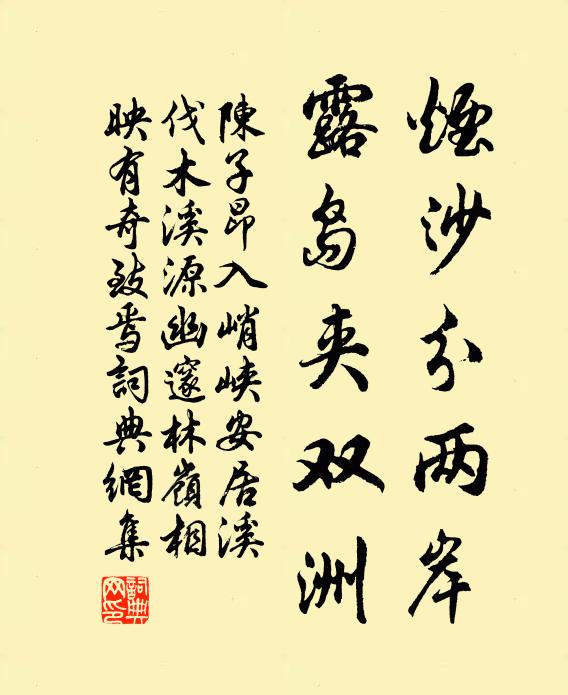 煙沙分两岸
露島夹双洲
陳子昂入峭峡安居溪
伐木溪源幽邃林嶺相
映有奇致焉詞典網集
詞典网印